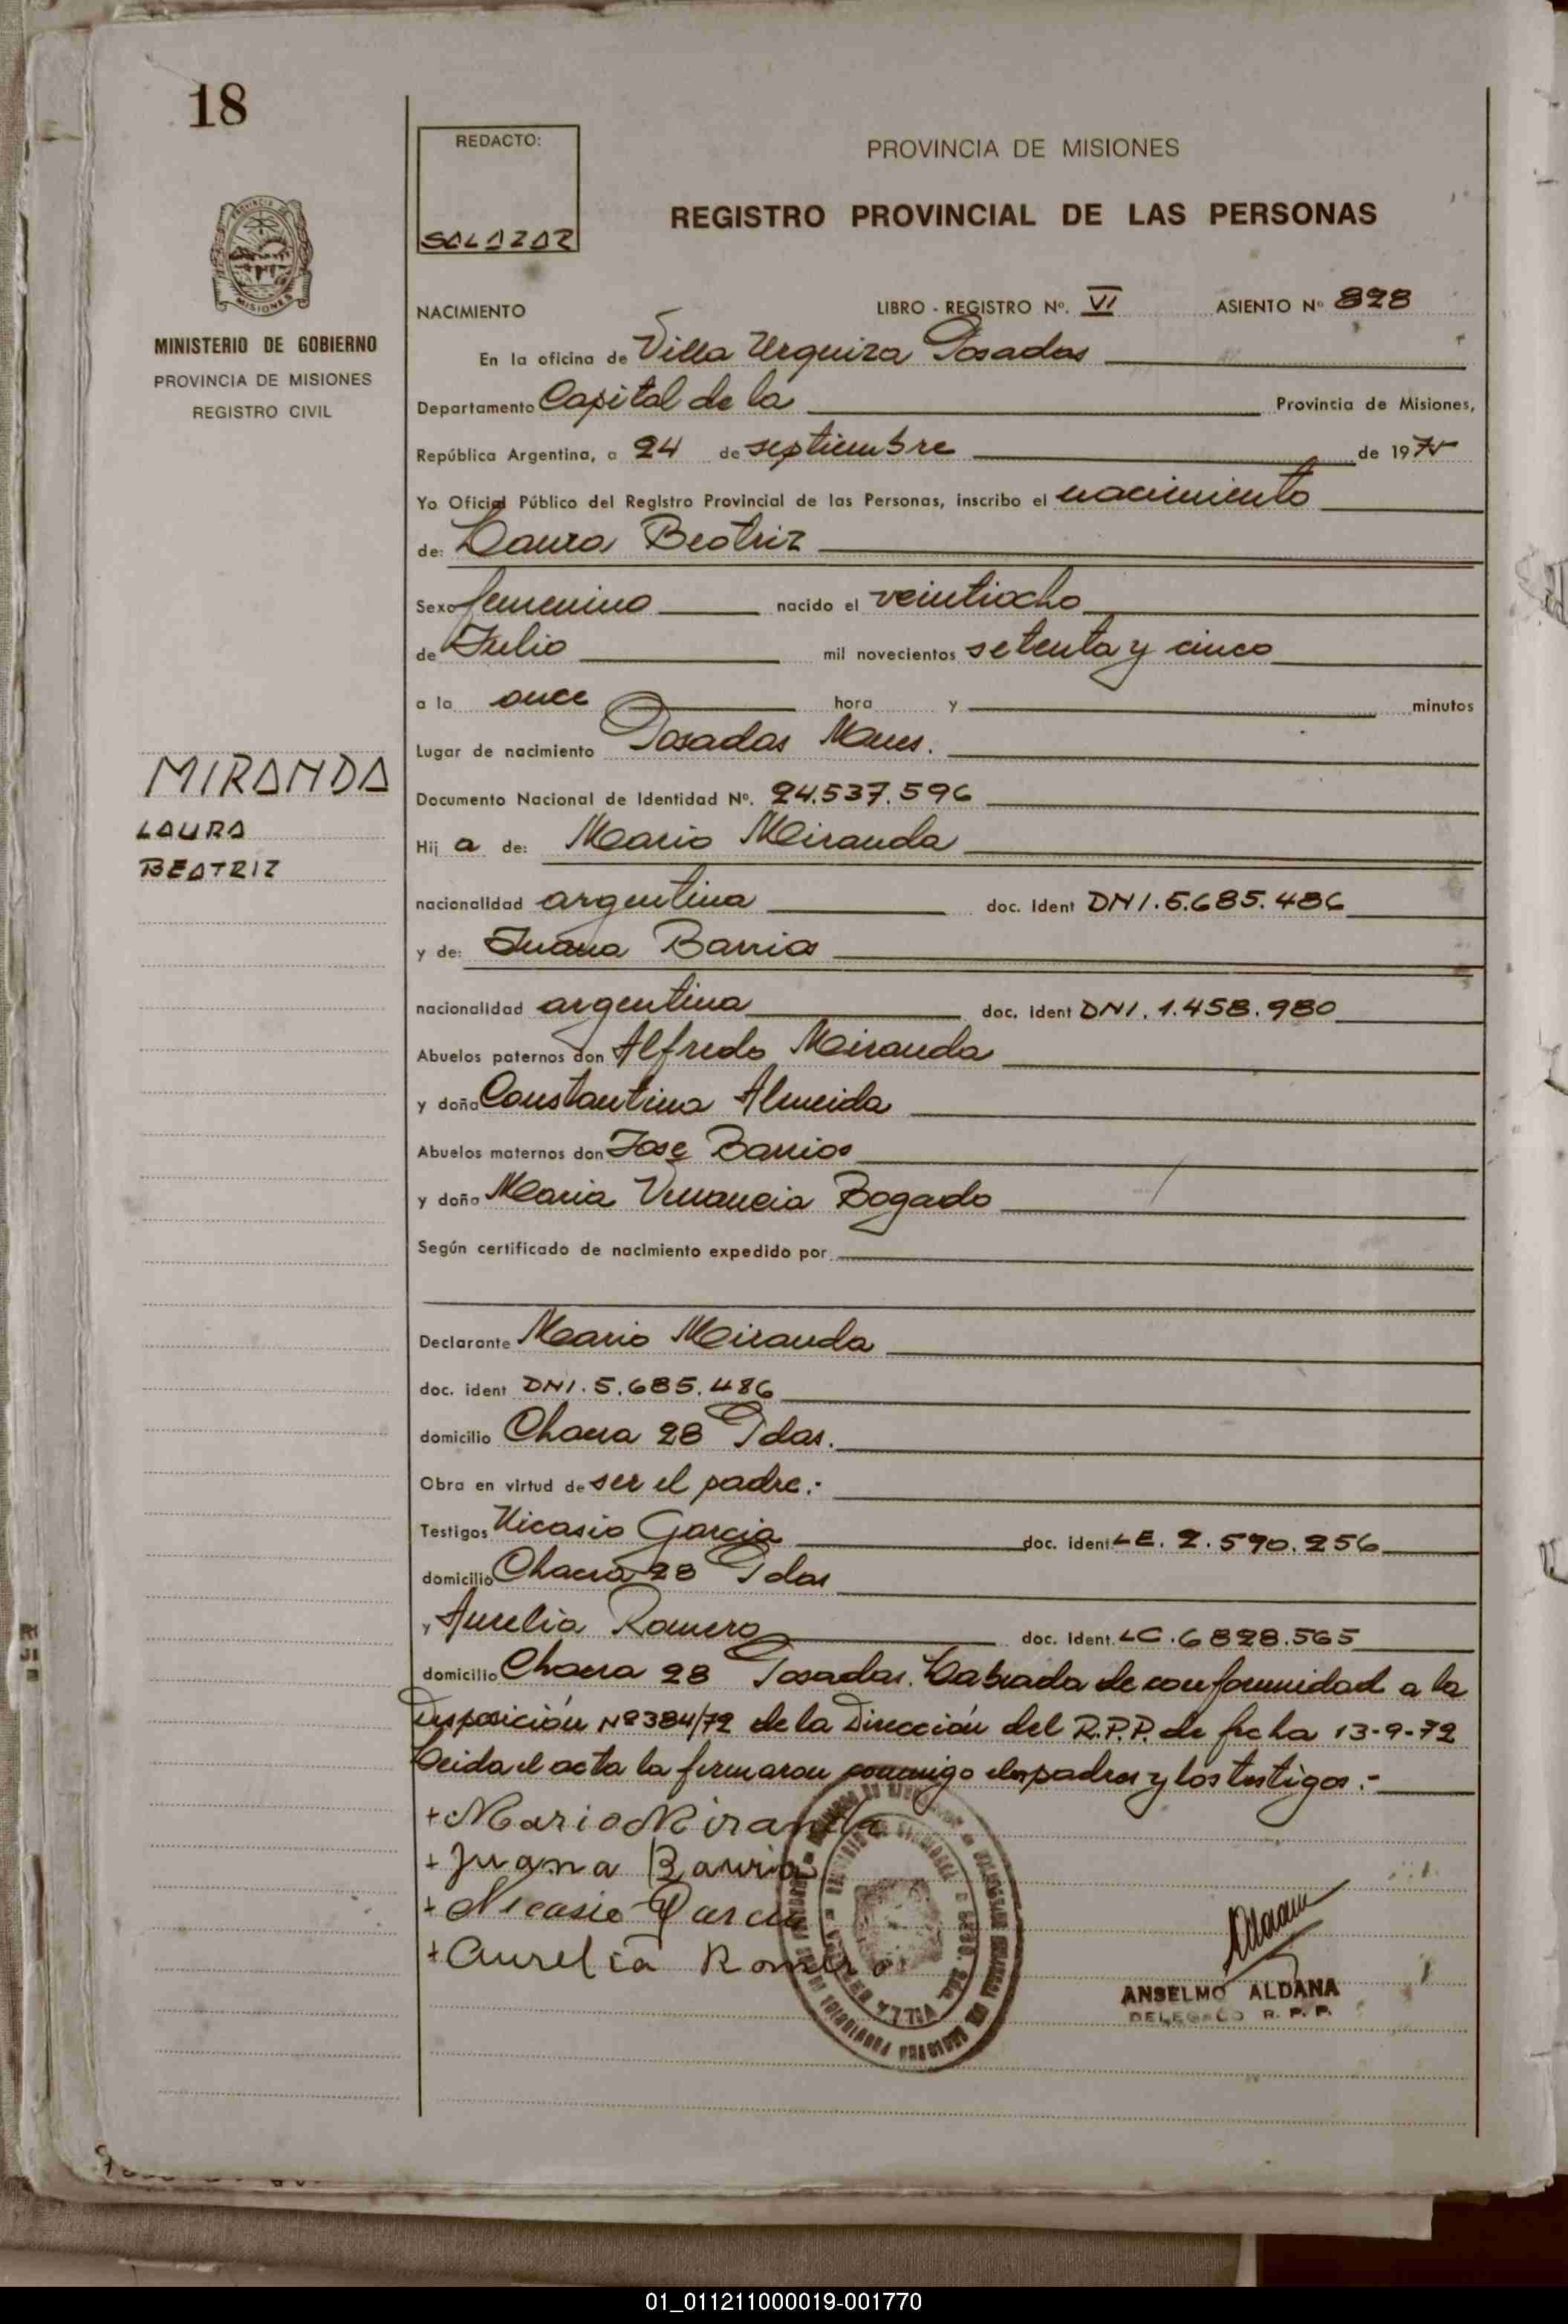 18
REDACTO:
SALAZAR
PROVINCIA DE MISIONES
REGISTRO PROVINCIAL DE LAS PERSONAS
PROVINCIA DE
MISIONES
MINISTERIO DE GOBIERNO
PROVINCIA DE MISIONES
REGISTRO CIVIL
NACIMIENTO LIBRO - REGISTRO Nº. VI ASIENTO Nº 828
En la oficina de Villa Urquiza Posadas
Departamento Capital de la Provincia de Misiones,
República Argentina, a 24 de septiembre de 1975
Yo Oficial Público del Registro Provincial de las Personas, inscribo el nacimiento
de: Laura Beatriz
Sexo femenino nacido el veintiocho
de Julio mil novecientos setenta y cinco
a la once hora y minutos
Lugar de nacimiento Posadas Mnes.
MIRANDA
LAURA
BEATRIZ
Documento Nacional de Identidad Nº. 24.537.596
Hij a de: Mario Miranda
nacionalidad argentina doc. Ident DNI. 5.685.486
y de: Juana Barrios
nacionalidad argentina doc. ident DNI. 1.458.980
Abuelos paternos don Alfredo Miranda
y doña Constantina Almeida
Abuelos maternos don Jose Barrios
y doña Maria Venancia Bogado
Según certificado de nacimiento expedido por
Declarante Mario Miranda
doc. ident DNI. 5.685.486
domicilio Chacra 28 Pdas.
Obra en virtud de ser el padre.-
Testigos Nicasio Garcia doc. ident LE. 2.590.256
domicilio Chacra 28 Pdas
y Aurelia Romero doc. Ident. LC. 6828.565
domicilio Chacra 28 Posadas. Labrada de conformidad a la
Disposición Nº 384/72 de la Dirección del R.P.P. de fecha 13-9-72
Leida el acta la firmaron conmigo los padres y los testigos.-
+ Mario Miranda
+ Juana Barrio
+ Nicasio Garcia
+ Aurelia Romero
ANSELMO ALDANA
DELEGADO R. P. P.
01_011211000019-001770